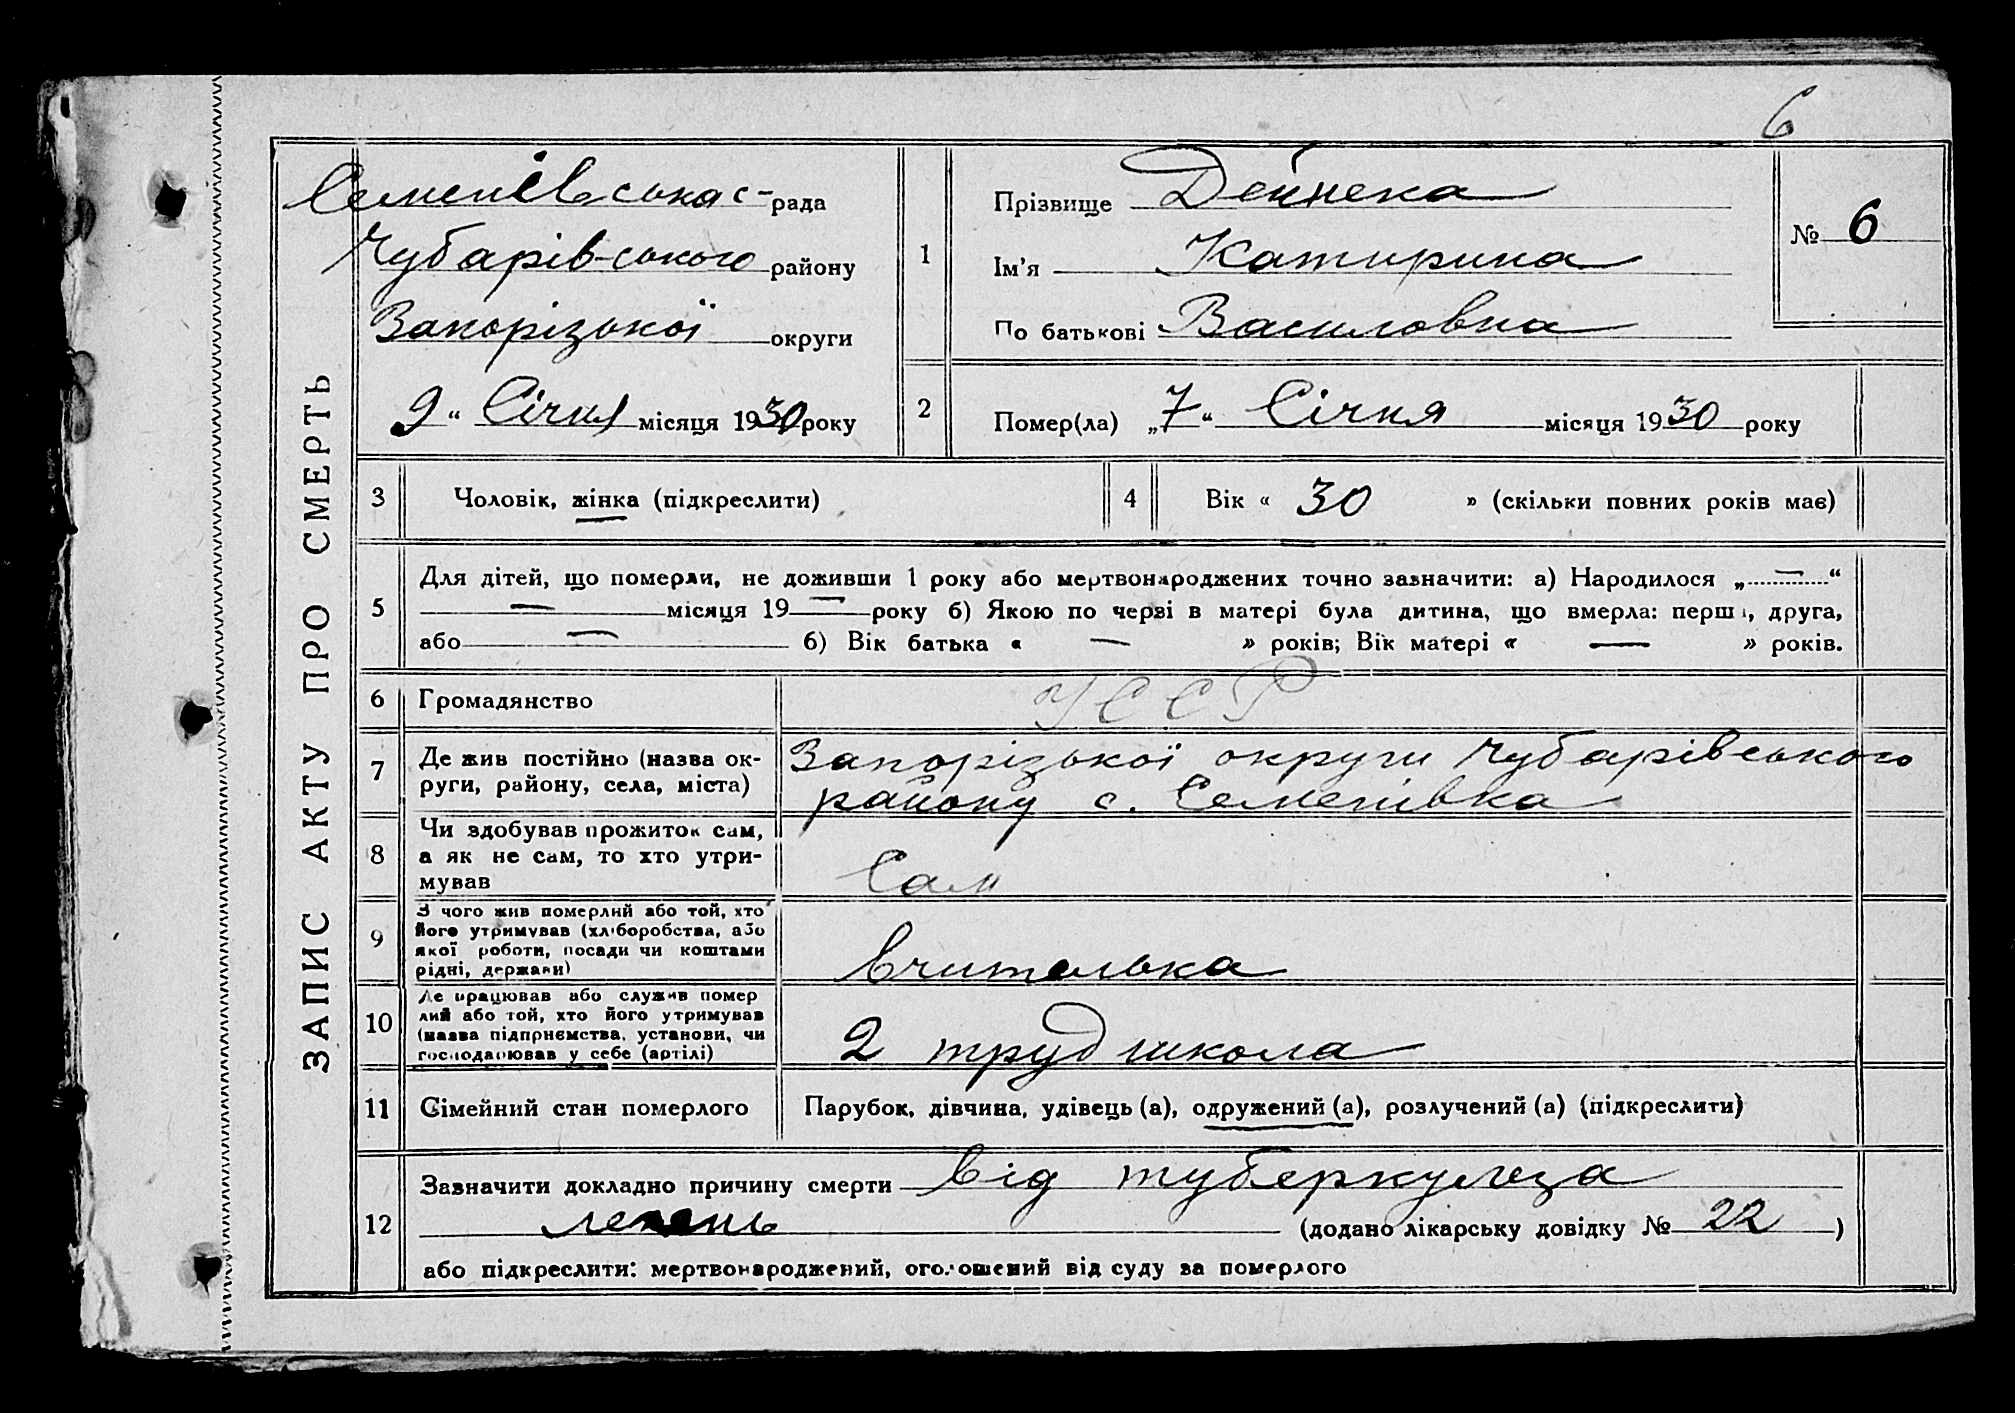 6
ЗАПИС АКТУ ПРО СМЕРТЬ
Семенівська с-рада
Чубарівського району
Запорізької округи
9 " Січня місяця 1930 року
1
Прізвище Дейнека
Ім'я Катирина
По батькові Василовна
№ 6
2
Помер(ла) „7" Січня місяця 1930 року
3 Чоловік, жінка (підкреслити)
4 Вік « 30 » (скільки повних років має)
5
Для дітей, що померли, не доживши 1 року або мертвонароджених точно зазначити: а) Народилося „ — "
— місяця 19 — року б) Якою по черві в матері була дитина, що вмерла: перша, друга,
або — б) Вік батька « — » років; Вік матері « — » років.
6 Громадянство УССР
7
Де жив постійно (назва ок-
руги, району, села, міста)
Запорізької округи Чубарівського
району с. Семенівка
8
Чи здобував прожиток сам,
а як не сам, то хто утри-
мував
Сам
9
З чого жив померлий або той, хто
його утримував (хліборобства, або
якої роботи, посади чи коштами
рідні, держави)
вчителька
10
Де працював або служив помер
лий або той, хто його утримував
(назва підприємства, установи, чи
господарював у себе (артілі)
2 труд школа
11 Сімейний стан померлого
Парубок, дівчина, удівець (а), одружений (а), розлучений (а) (підкреслити)
12
Зазначити докладно причину смерти від туберкульоза
легень (додано лікарську довідку № 22 )
або підкреслити: мертвонароджений, оголошений від суду за померлого